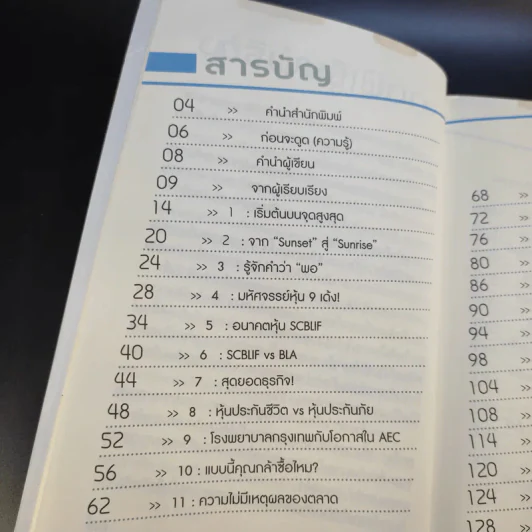 สารบัญ
04 >> คำนำสำนักพิมพ์
06 >> ก่อนจะดูด (ความรู้)
08 >> คำนำผู้เขียน
09 >> จากผู้เรียบเรียง
14 >> 1 : เริ่มต้นบนจุดสูงสุด
20 >> 2 : จาก “Sunset” สู่ “Sunrise”
24 >> 3 : รู้จักคำว่า “พอ”
28 >> 4 : มหัศจรรย์หุ้น 9 เด้ง!
34 >> 5 : อนาคตหุ้น SCBLIF
40 >> 6 : SCBLIF vs BLA
44 >> 7 : สุดยอดธุรกิจ!
48 >> 8 : หุ้นประกันชีวิต vs หุ้นประกันภัย
52 >> 9 : โรงพยาบาลกรุงเทพกับโอกาสใน AEC
56 >> 10 : แบบนี้คุณกล้าซื้อไหม?
62 >> 11 : ความไม่มีเหตุผลของตลาด
68 >>
72 >>
76 >>
80 >>
86 >>
90 >>
94 >>
98 >>
104 >>
108 >>
114 >>
120 >>
124 >>
128 >>